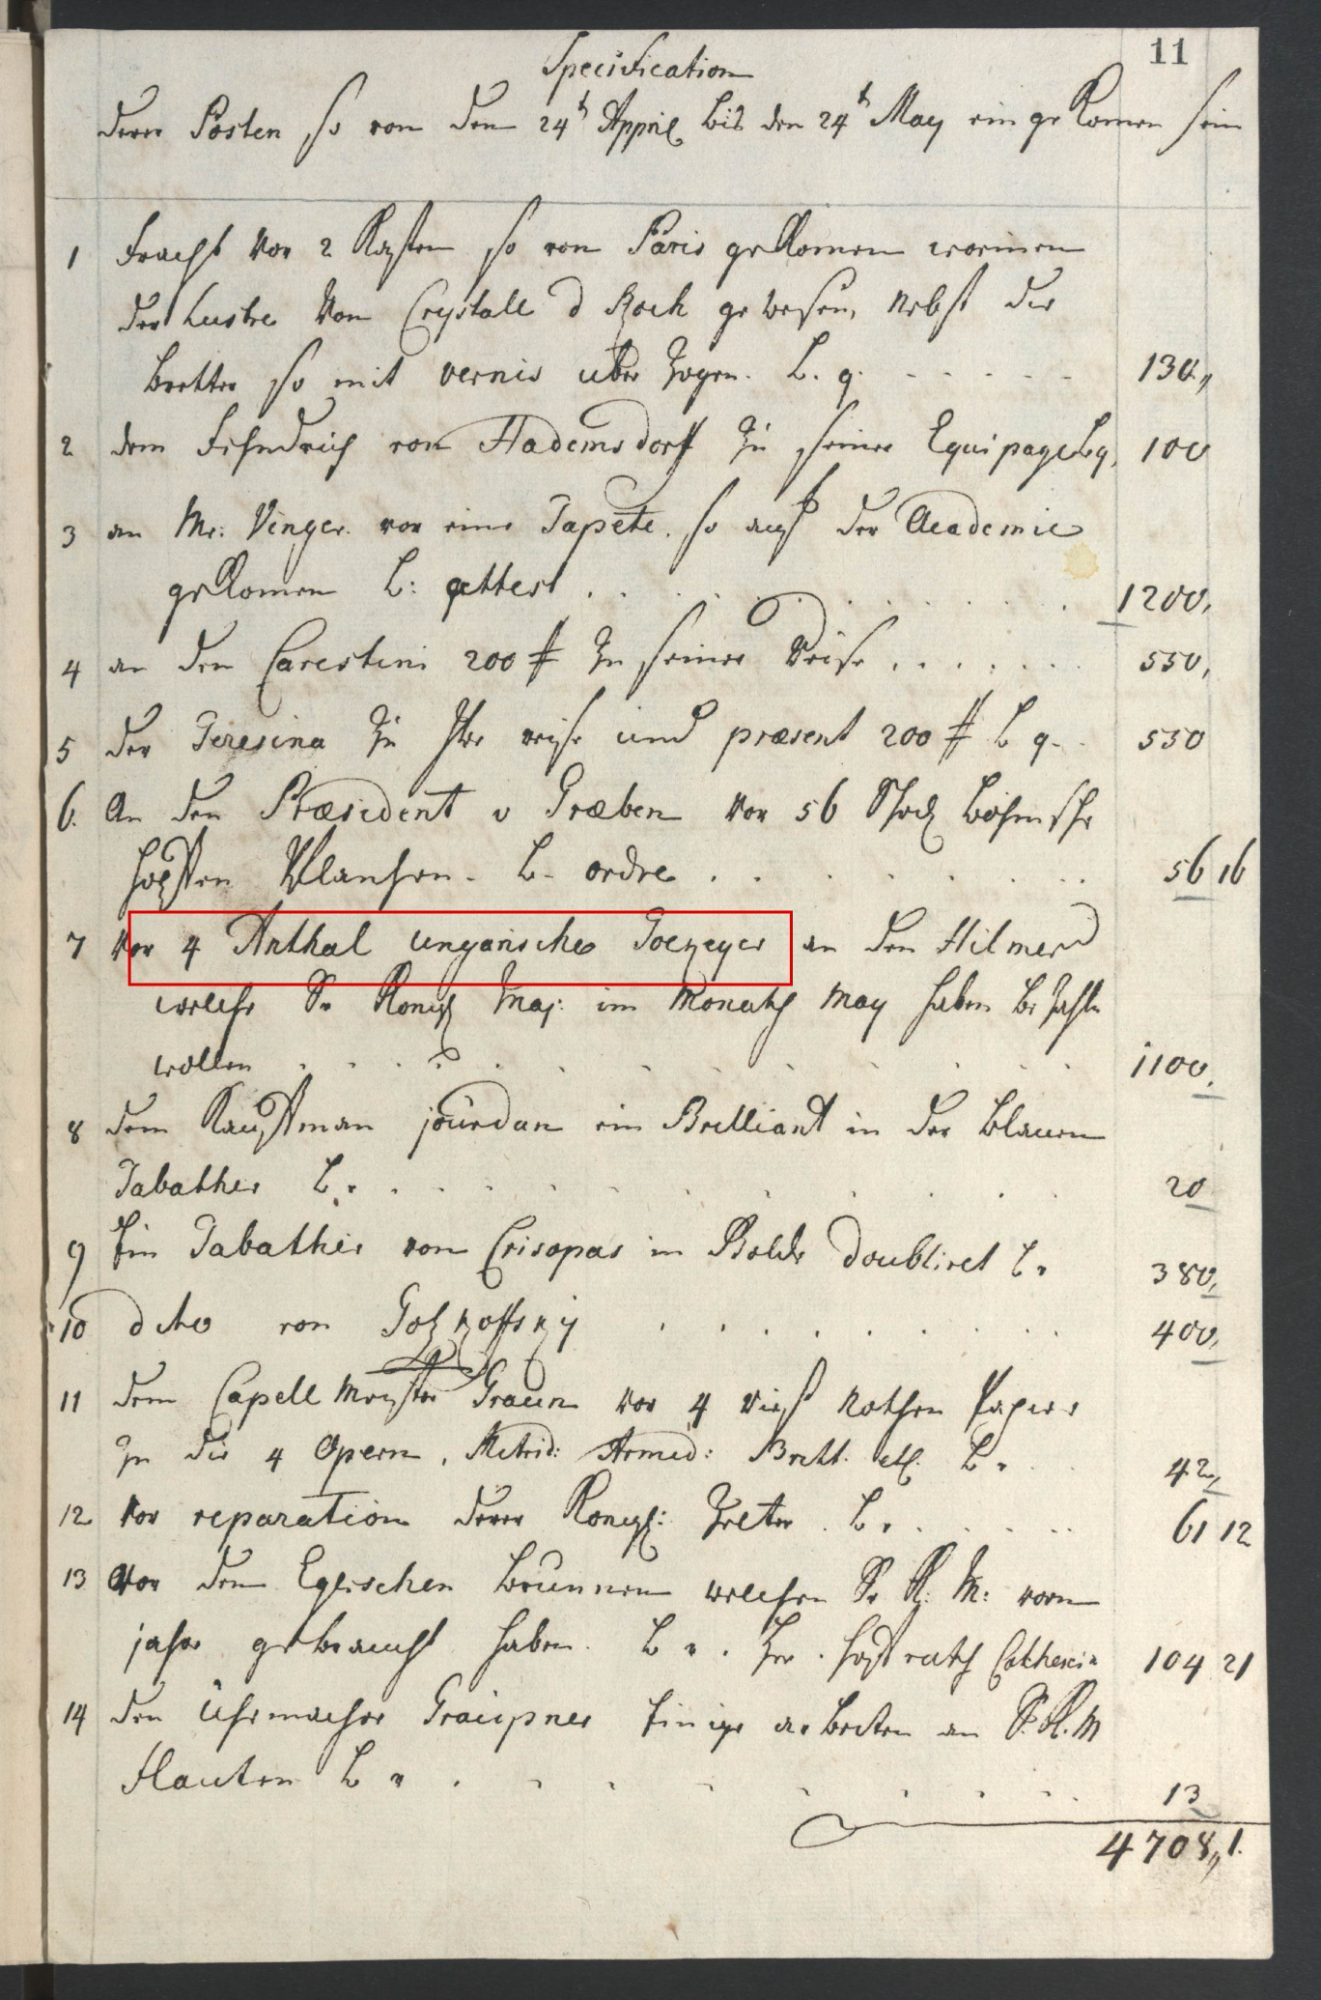 11
Specification
derer Posten so von dem 24t Apprill bis den 24t May ein gekomen sein
1 Fracht vor 2 Kasten so von Paris gekomen worinnen
der Lustre von Crystall d Roch gewesen, nebst der
bretter so mit vernis uber zogen. L. q. 130,,
2 dem Fehndrich von Hademsdorff zu seiner Equipage L. q. 100
3 an Mr: Venger vor eine Tapete so auf der Academie
gekomen L: attest 1200,
4 an den Carestini 200 # zu seiner Reise 550,
5 der Teresina zu Ihre reise und præsent 200 # L q. 550
6. An den Præsident v Græben vor 56 Schock böhmsche
hopffen Pflantzen. L. ordre 56 16
7 vor 4 Anthal ungarischen Tockeyer an den Hilmer
welche Sr Königl Maj: im Monath May haben bezahlen
wollen 1100,
8 dem Kauffman jourdan ein Brilliant in der blauen
Tabathier L. 20
9 Ein Tabathier von Crisopas in Golde doubliret L. 380,
10 dito von Gotzkoffsky 400,
11 dem Capell Meyster Graun vor 4 rieß nothen Papier
zu die 4 Opern, Mitrid: Armid: Britt. etc. L. 42,
12 vor reparation derer Königl: Zelter. L. 61 12
13 vor dem Egrischen brunnen welchen Sr K: M: vorm
jahr gebraucht haben. L. hoffrath 104 21
14 den Uhrmacher Graupner Einige arbeiten an S. K. M
Flauten L. 13
4708,, 1.